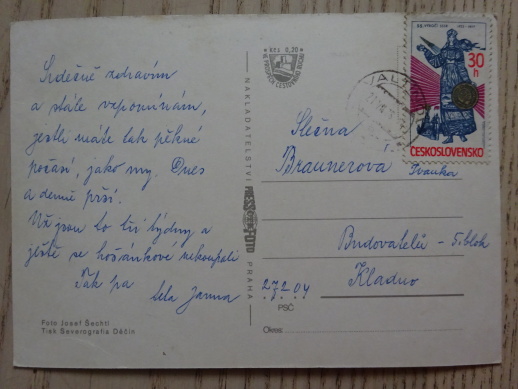 Srdečně zdravím
a stále vzpomínám,
jestli máte tak pěkné
počasí, jako my. Dnes
a denně prší.
Už jsou to tři týdny a
ještě se hošánkové nekoupali
Tak pa
Jarma
Foto Josef Šechtl
Tisk Severografia Děčín
Kčs 0,30
NAKLADATELSTVÍ
PRESSFOTO
PRAHA
30
h
ČESKOSLOVENSKO
Slečna
Braunerova Ivanka
Budovatelů - 5. blok
Kladno
272 04
PSČ
Okres